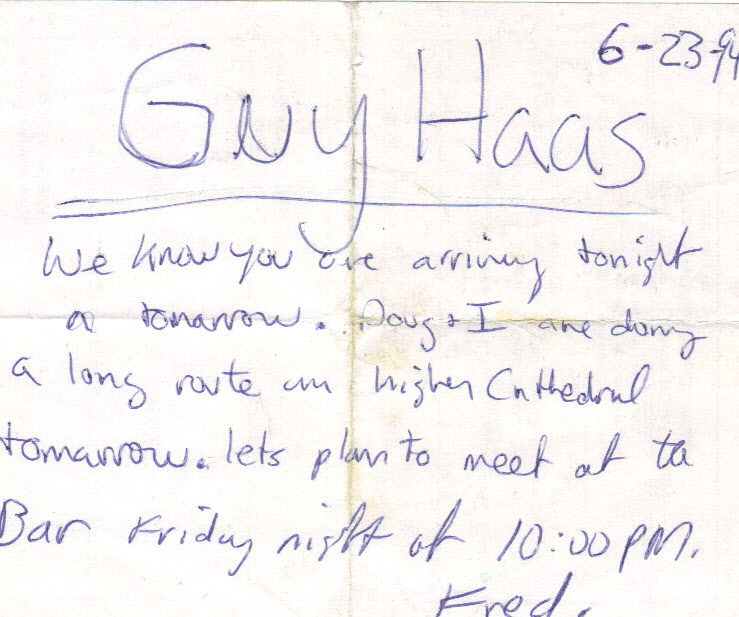 6-23-94
Guy Haas
We know you are arriving tonight
or tomorrow. Doug + I are doing
a long route on higher Cathedral
tomorrow. lets plan to meet at the
Bar Friday night at 10:00 PM.
Fred.